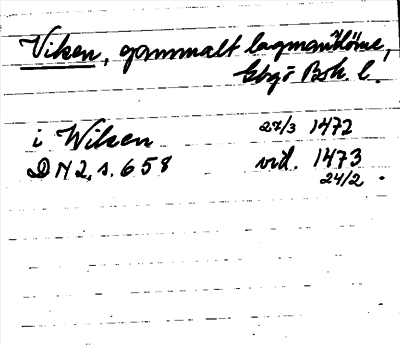 Viken, gammalt lagmansdöme,
Gbgs Boh. l.
i Wiken 27/3 1472
DN 2, s. 658 vid. 1473
24/2